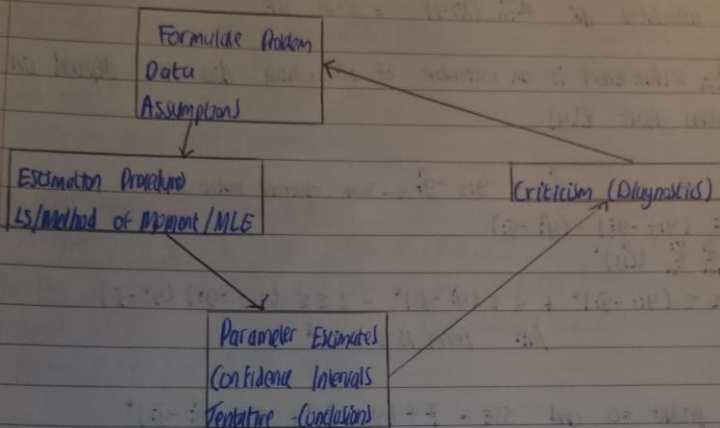 Formulate Problem
Data
Assumptions
Estimation Procedures
LS/Method of Moment/MLE
Criticism (Diagnostics)
Parameter Estimates
Confidence Intervals
Tentative Conclusions